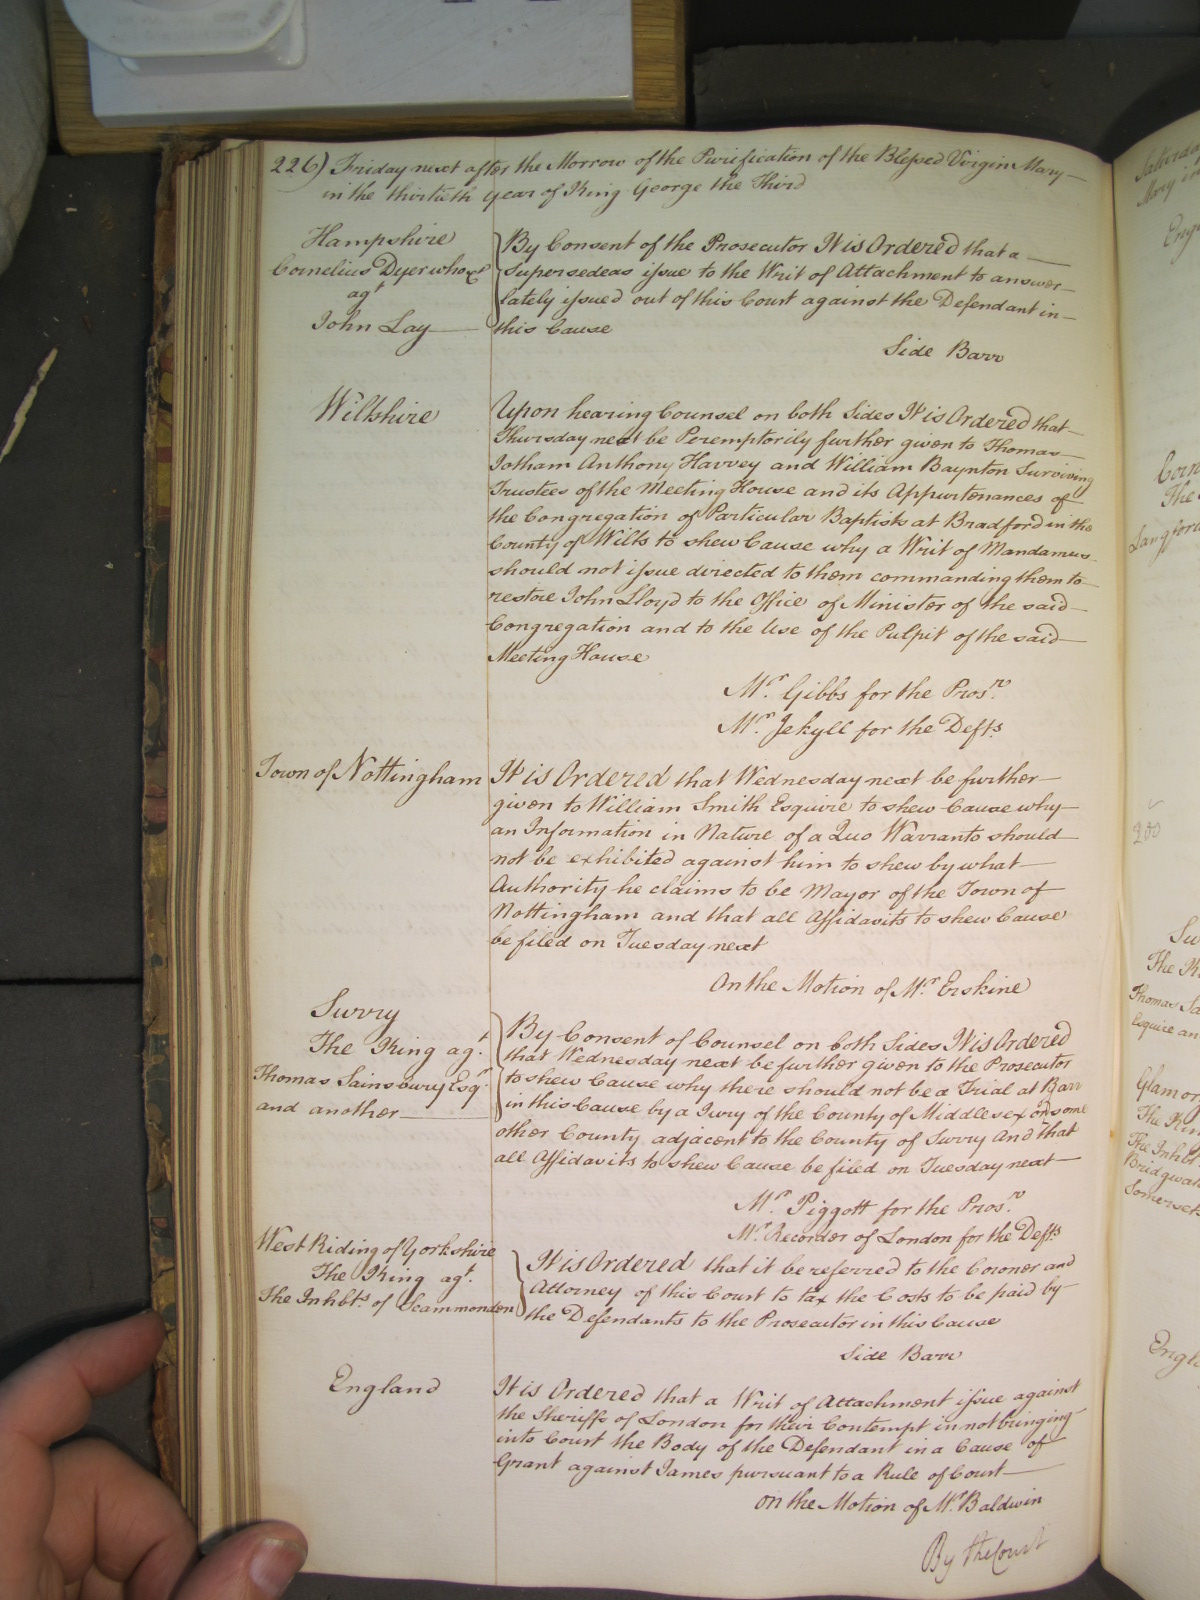 226) Friday next after the Morrow of the Purification of the Blessed Virgin Mary
in the thirtieth year of King George the Third
Hampshire
Cornelius Dyer who &c
agt
John Lay
By Consent of the Prosecutor It is Ordered that a
Supersedeas issue to the Writ of Attachment to answer
lately issued out of this Court against the Defendant in
this Cause
Side Barr
Wiltshire
Upon hearing Counsel on both Sides It is Ordered that
Thursday next be Peremptorily further given to Thomas
Jotham Anthony Harvey and William Baynton Surviving
Trustees of the Meeting House and its Appurtenances of
the Congregation of Particular Baptists at Bradford in the
County of Wilts to shew Cause why a Writ of Mandamus
should not issue directed to them commanding them to
restore John Lloyd to the Office of Minister of the said
Congregation and to the Use of the Pulpit of the said
Meeting House
Mr. Gibbs for the Prosr.
Mr. Jekyll for the Defts.
Town of Nottingham
It is Ordered that Wednesday next be further
given to William Smith Esquire to shew Cause why
an Information in Nature of a Quo Warranto should
not be exhibited against him to shew by what
Authority he claims to be Mayor of the Town of
Nottingham and that all Affidavits to shew Cause
be filed on Tuesday next
On the Motion of Mr. Erskine
Surry
The King agt.
Thomas Sainsbury Esqr.
and another
By Consent of Counsel on both Sides It is Ordered
that Wednesday next be further given to the Prosecutor
to shew Cause why there should not be a Trial at Barr
in this Cause by a Jury of the County of Middlesex or some
other County adjacent to the County of Surry And that
all Affidavits to shew Cause be filed on Tuesday next
Mr. Piggott for the Prosr.
Mr. Recorder of London for the Defts.
West Riding of Yorkshire
The King agt.
The Inhbts. of Scammonden
It is Ordered that it be referred to the Coroner and
Attorney of this Court to tax the Costs to be paid by
the Defendants to the Prosecutor in this Cause
Side Barr
England
It is Ordered that a Writ of Attachment issue against
the Sheriffs of London for their Contempt in not bringing
into Court the Body of the Defendant in a Cause of
Grant against James pursuant to a Rule of Court
On the Motion of Mr. Baldwin
By the Court
Saturday
Mary in
The
Langford
200
The K
Thomas Sa
Esquire an
Glamor
The Kin
The Inhbt
Bridgwat
Somerset